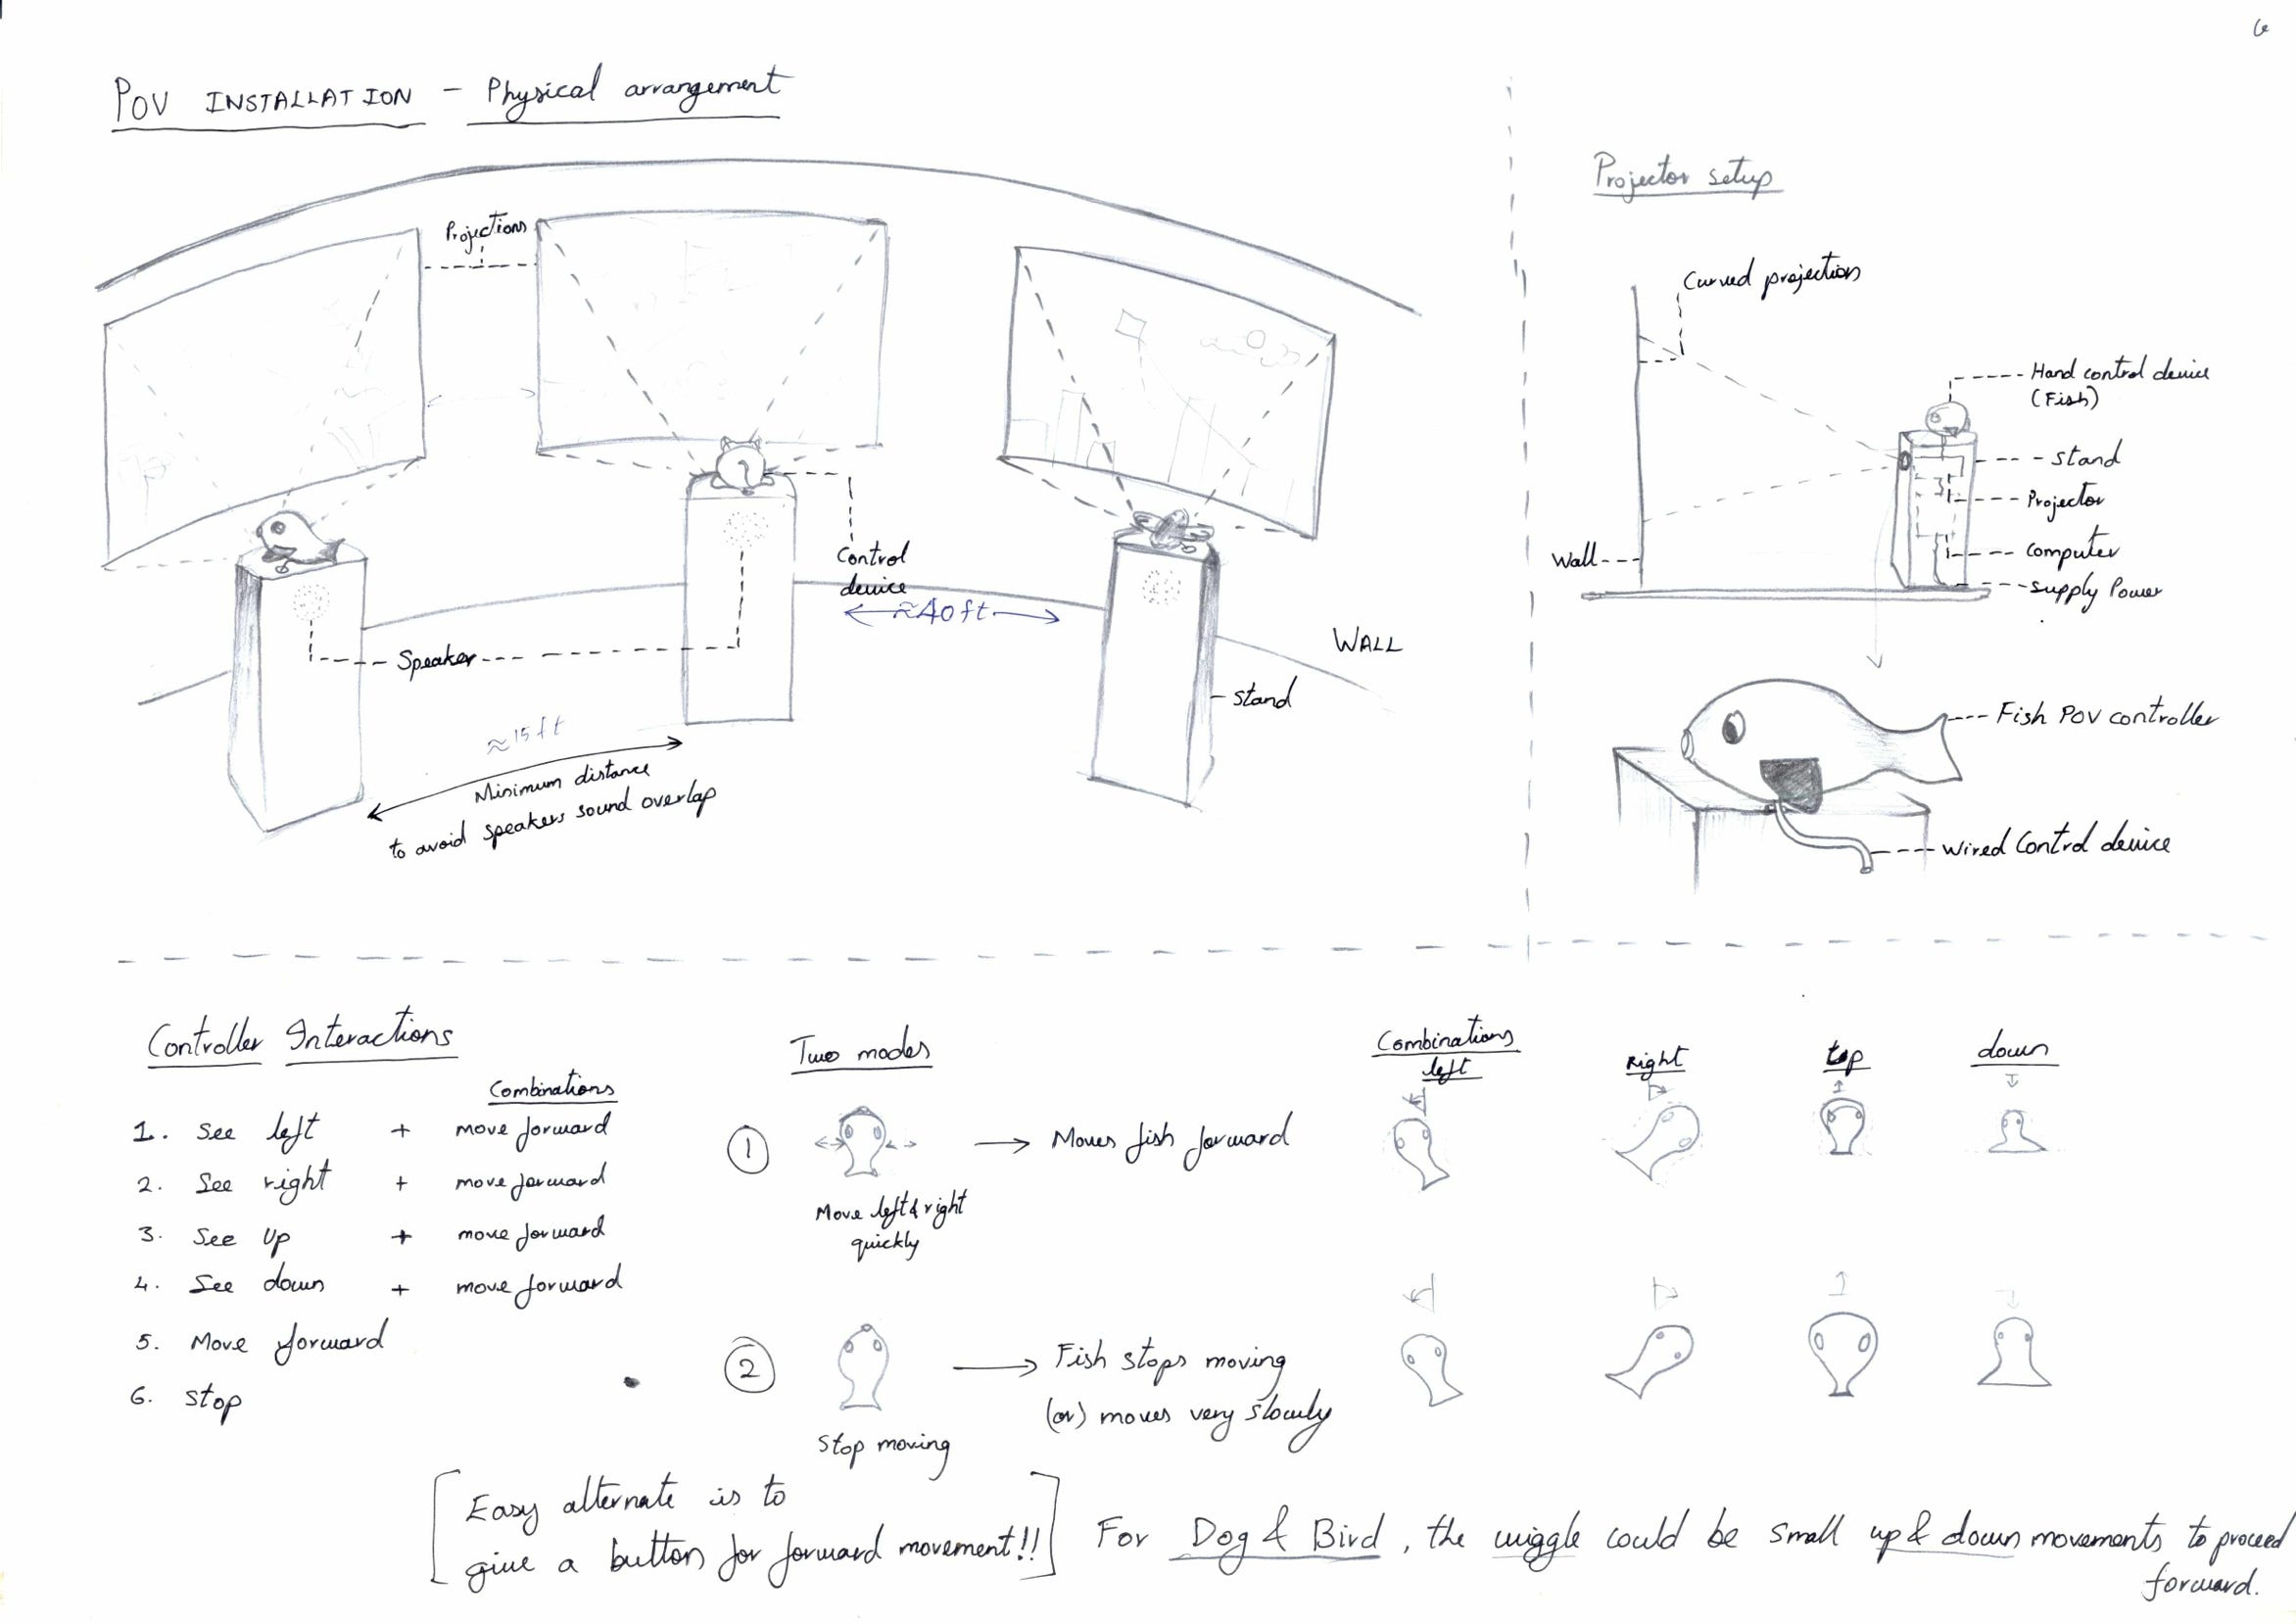 6
POV INSTALLATION - Physical arrangement
Projections
Control
device
≈40ft
Speaker
WALL
Stand
≈15ft
Minimum distance
to avoid speakers sound overlap
Projector setup
Curved projection
Hand control device
(Fish)
stand
Projector
computer
supply Power
Wall
Fish POV controller
Wired Control device
Controller Interactions
Combinations
1. See left + move forward
2. See right + move forward
3. See Up + move forward
4. See down + move forward
5. Move forward
6. Stop
Two modes
1 → Moves fish forward
Move left & right
quickly
2 → Fish stops moving
(or) moves very slowly
Stop moving
Combinations
left Right top down
[Easy alternate is to
give a button for forward movement!!]
For Dog & Bird, the wiggle could be small up & down movements to proceed
forward.